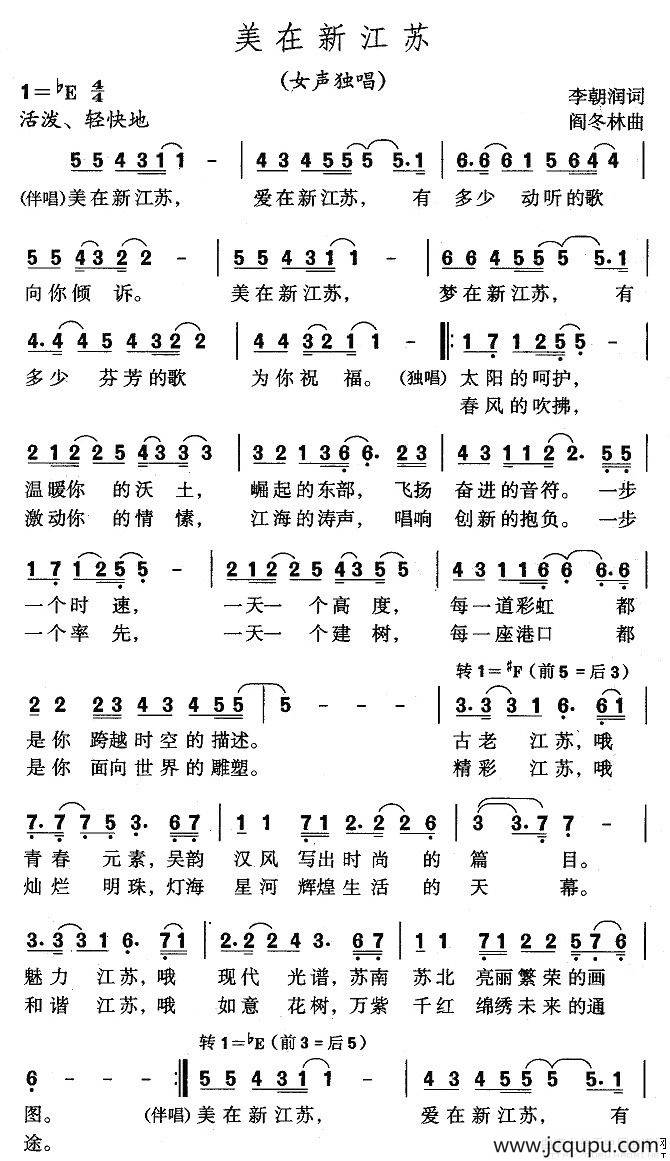 美在新江苏
(女声独唱)
1=♭E 4/4
李朝润词
活泼、轻快地
阎冬林曲
5 5 4 3 1 1 - | 4 3 4 5 5 5 5. 1 | 6. 6 6 1 5 6 4 4
(伴唱)美在新江苏, 爱在新江苏, 有 多少 动听的歌
5 5 4 3 2 2 - | 5 5 4 3 1 1 - | 6 6 4 5 5 5 5. 1
向你倾 诉。 美在新江苏, 梦在新江苏, 有
4. 4 4 5 4 3 2 2 | 3 4 3 2 1 1 - ‖: 1 7 1 2 5 5 -
多少 芬芳的歌 为你祝 福。 (独唱) 太阳的呵护,
春风的吹拂,
2 1 2 2 5 4 3 3 3 | 3 2 1 3 6 6. 2 3 | 4 3 1 1 2 2. 5 5
温暖你 的沃 土, 崛起的东部, 飞扬 奋进的音符。 一步
激动你 的情 愫, 江海的涛声, 唱响 创新的抱负。 一步
1 7 1 2 5 5 - | 2 1 2 2 5 4 3 5 5 | 4 3 1 1 6 6 6. 6
一个时 速, 一天一 个高度, 每一道彩虹 都
一个率 先, 一天一 个建树, 每一座港口 都
转1=♯F (前5=后3)
2 2 2 3 4 3 4 5 5 | 5 - - - | 3. 3 3 1 6. 6 1
是你 跨越时空的描述。 古老 江苏,哦
是你 面向世界的雕塑。 精彩 江苏,哦
7. 7 7 5 3. 6 7 | 1 1 7 1 2. 2 2 6 | 3 3. 7 7 -
青春 元素,吴韵 汉风 写出时尚 的 篇 目。
灿烂 明珠,灯海 星河 辉煌生活 的 天 幕。
3. 3 3 1 6. 7 1 | 2. 2 2 4 3. 6 7 | 1 1 7 1 2 2 5 7 6
魅力 江苏,哦 现代 光谱,苏南 苏北 亮丽繁荣的画
和谐 江苏,哦 如意 花树,万紫 千红 绵绣未来的通
转1=♭E (前3=后5)
6 - - - :‖ 5 5 4 3 1 1 - | 4 3 4 5 5 5 5. 1
图。 (伴唱) 美在新江苏, 爱在新江苏, 有
途。
www.jcqupu.com